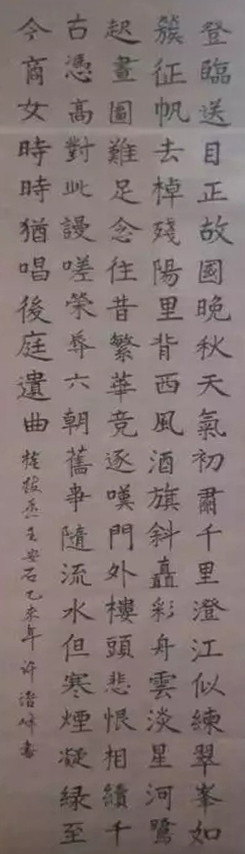 登臨送目正故國晚秋天氣初肅千里澄江似練翠峯如
簇征帆去棹殘陽里背西風酒旗斜矗彩舟雲淡星河鷺
起畫圖難足念往昔繁華竞逐嘆門外樓頭悲恨相續千
古憑高對此謾嗟榮辱六朝舊事隨流水但寒煙凝緑至
今商女時時猶唱後庭遺曲 桂枝香王安石乙未年许